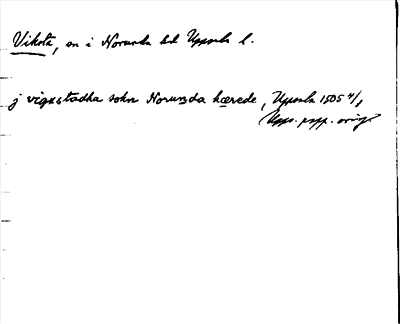 Viksta, sn i Norunda hd Uppsala l.
j vigxstadha sokn Norunda hærede, Upsala 1505 4/1
Upps. papp. orig.